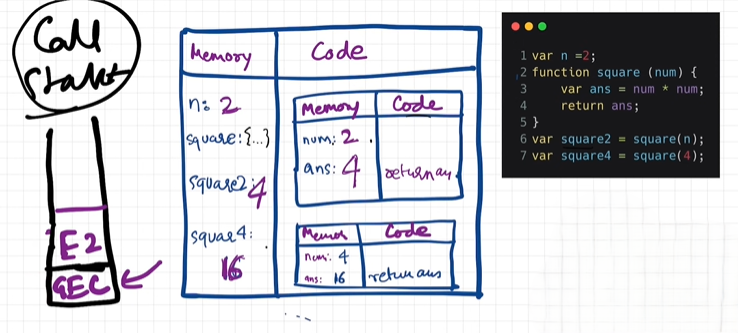 Call
Stack
Memory
Code
n: 2
square:{...}
square2: 4
squar4:
16
Memory
Code
num: 2
ans: 4
return an
Memor
Code
num: 4
ans: 16
return ans
E2
GEC
...
1 var n =2;
2 function square (num) {
3 var ans = num * num;
4 return ans;
5 }
6 var square2 = square(n);
7 var square4 = square(4);